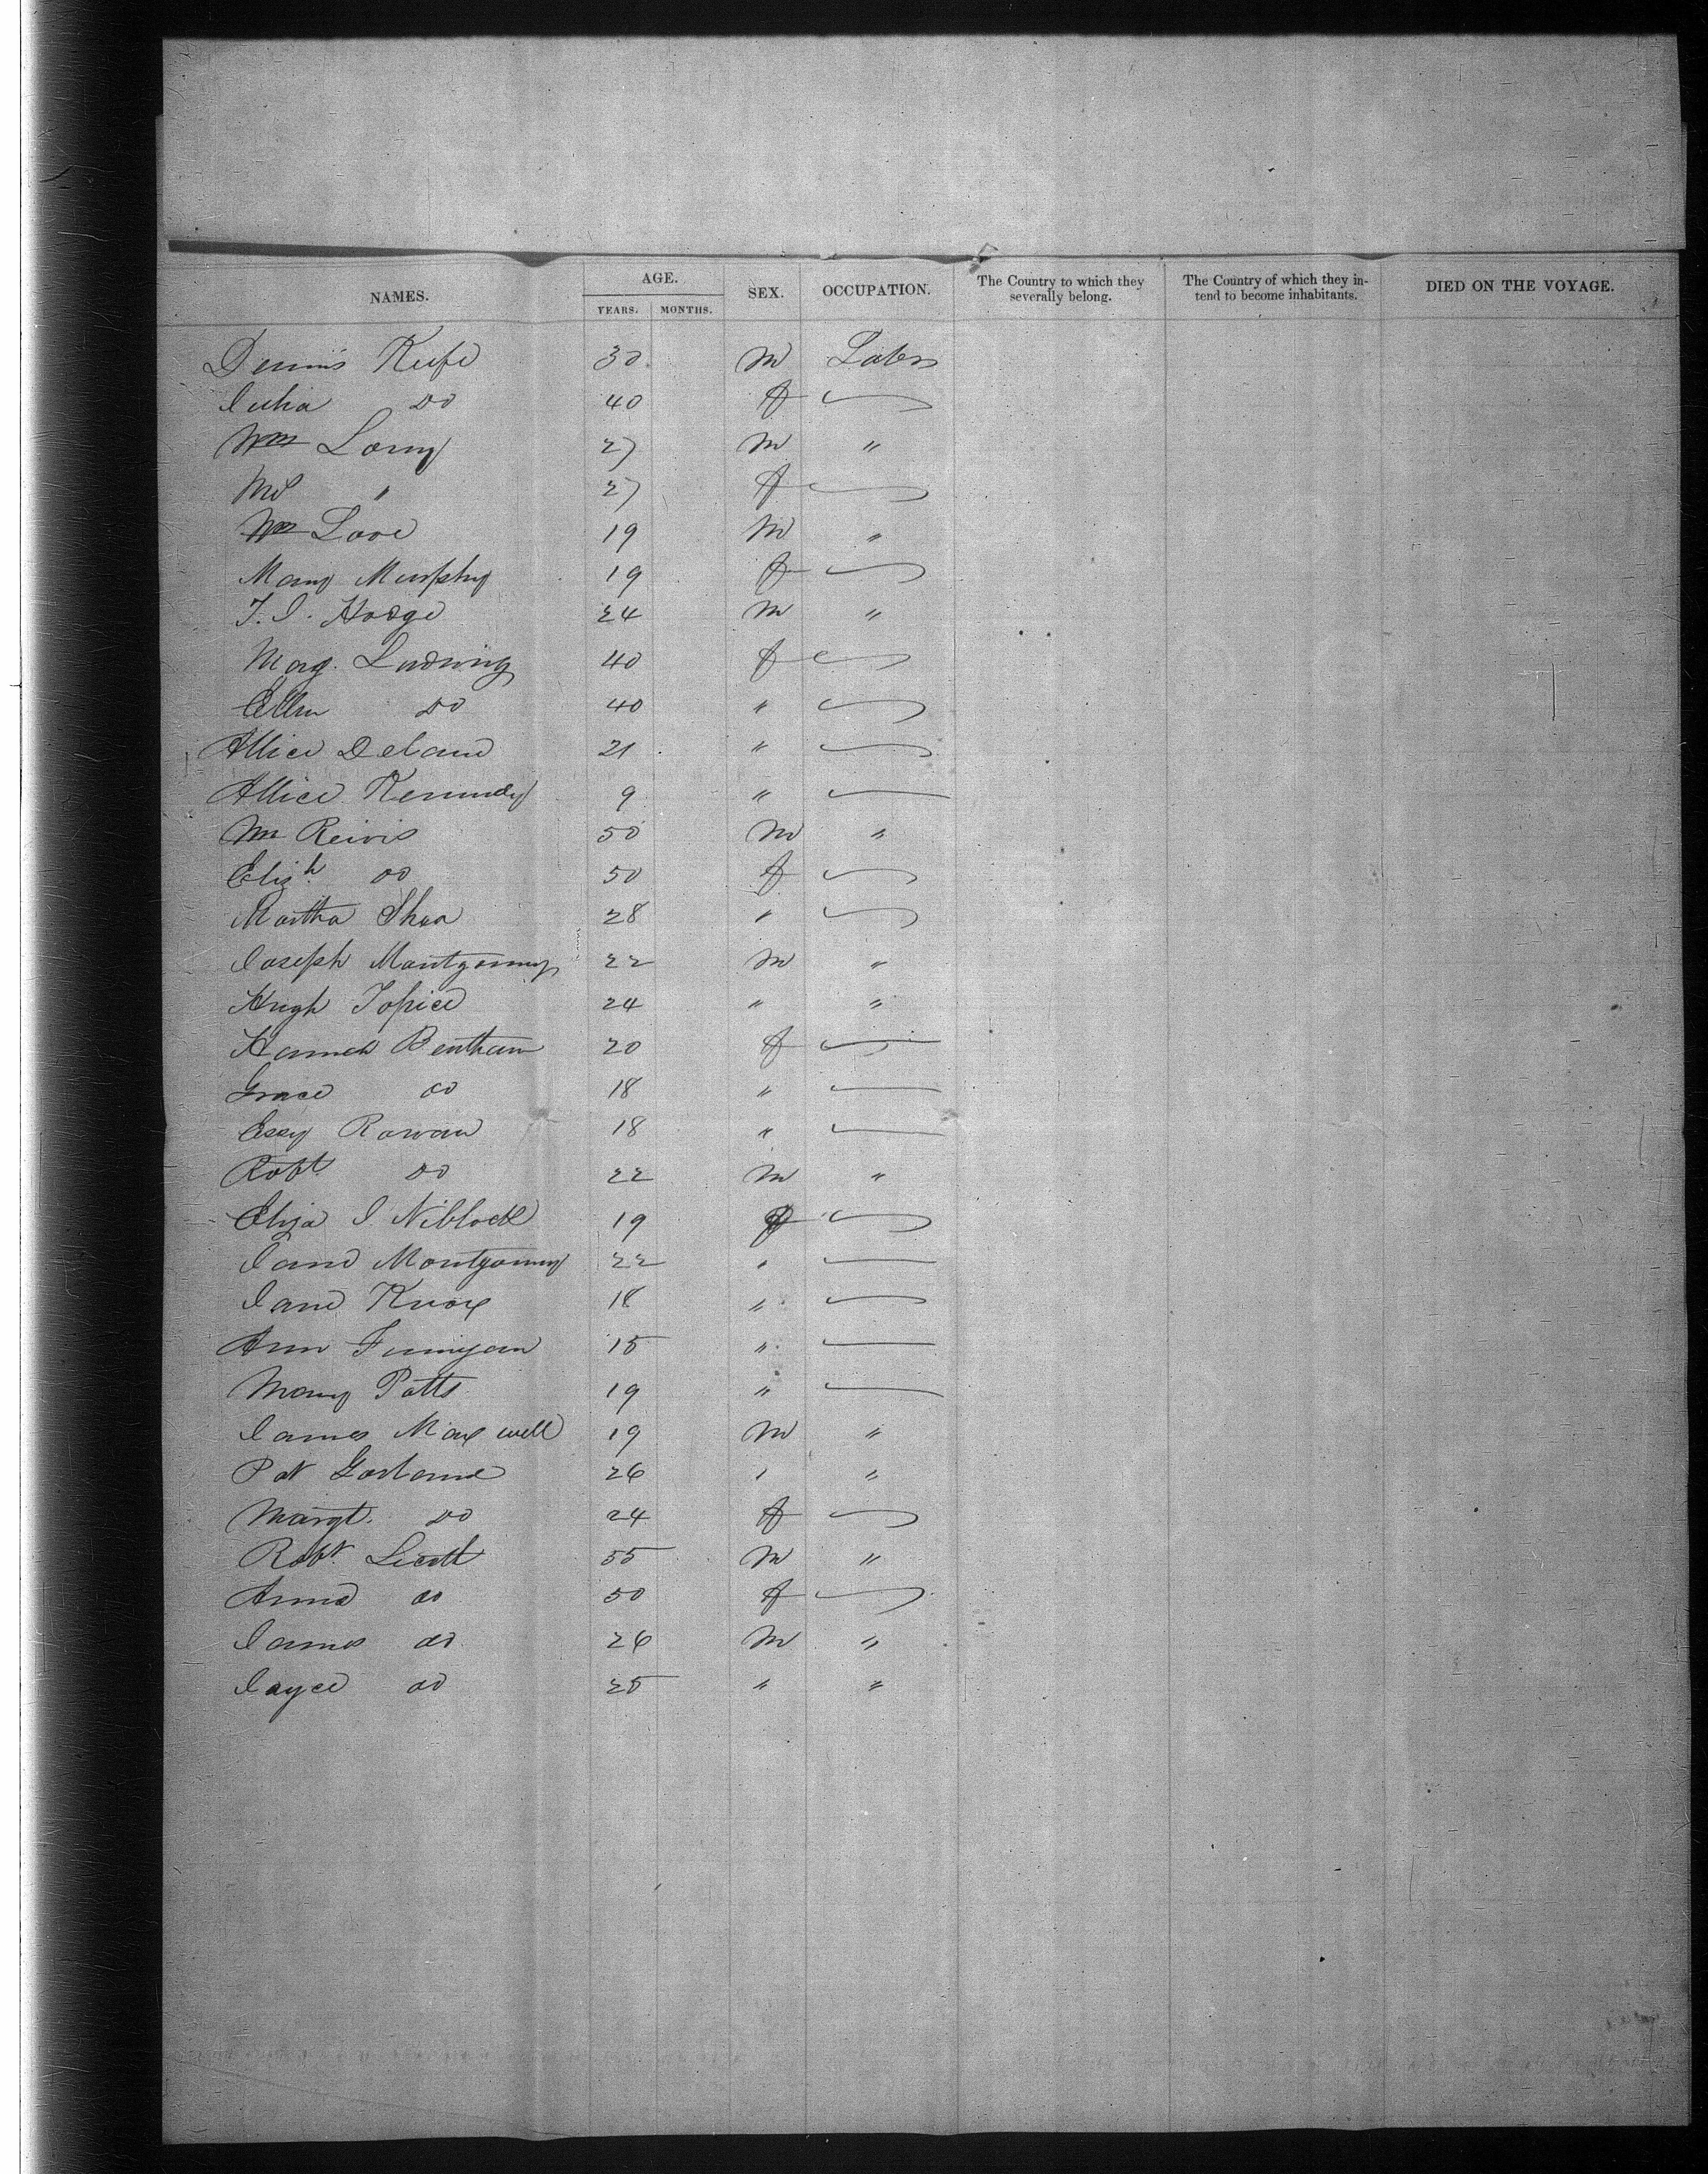 NAMES. AGE. SEX. OCCUPATION. The Country to which they severally belong. The Country of which they intend to become inhabitants. DIED ON THE VOYAGE.
YEARS. MONTHS.
Dennis Keefe 30 M Labr
Julia Do 40 f
Wm Lorny 27 M "
Mrs " 27 f
Wm Love 19 M "
Mary Murphy 19 f
T. J. Hodge 24 M "
Mag. Ludwig 40 f
Ellen Do 40 "
Allice Deland 21 "
Allice Kennedy 9 "
Wm Reivis 50 M "
Elizh. Do 50 f
Martha Shea 28 "
Joseph Montgomery 22 M "
Hugh 24 " "
Hannah Bentham 20 f
Grace Do 18 "
Essy Rowan 18 "
Robt. Do 22 M "
Eliza J. Niblock 19 f
Jane Montgomery 22 "
Jane Knox 18 "
Ann Finnigan 15 "
Mary Potts 19 "
James Maxwell 19 M "
Pat Garland 26 " "
Margt. Do 24 f
Robt. Scott 55 M "
Anna Do 50 f
James Do 26 M "
Do 25 " "